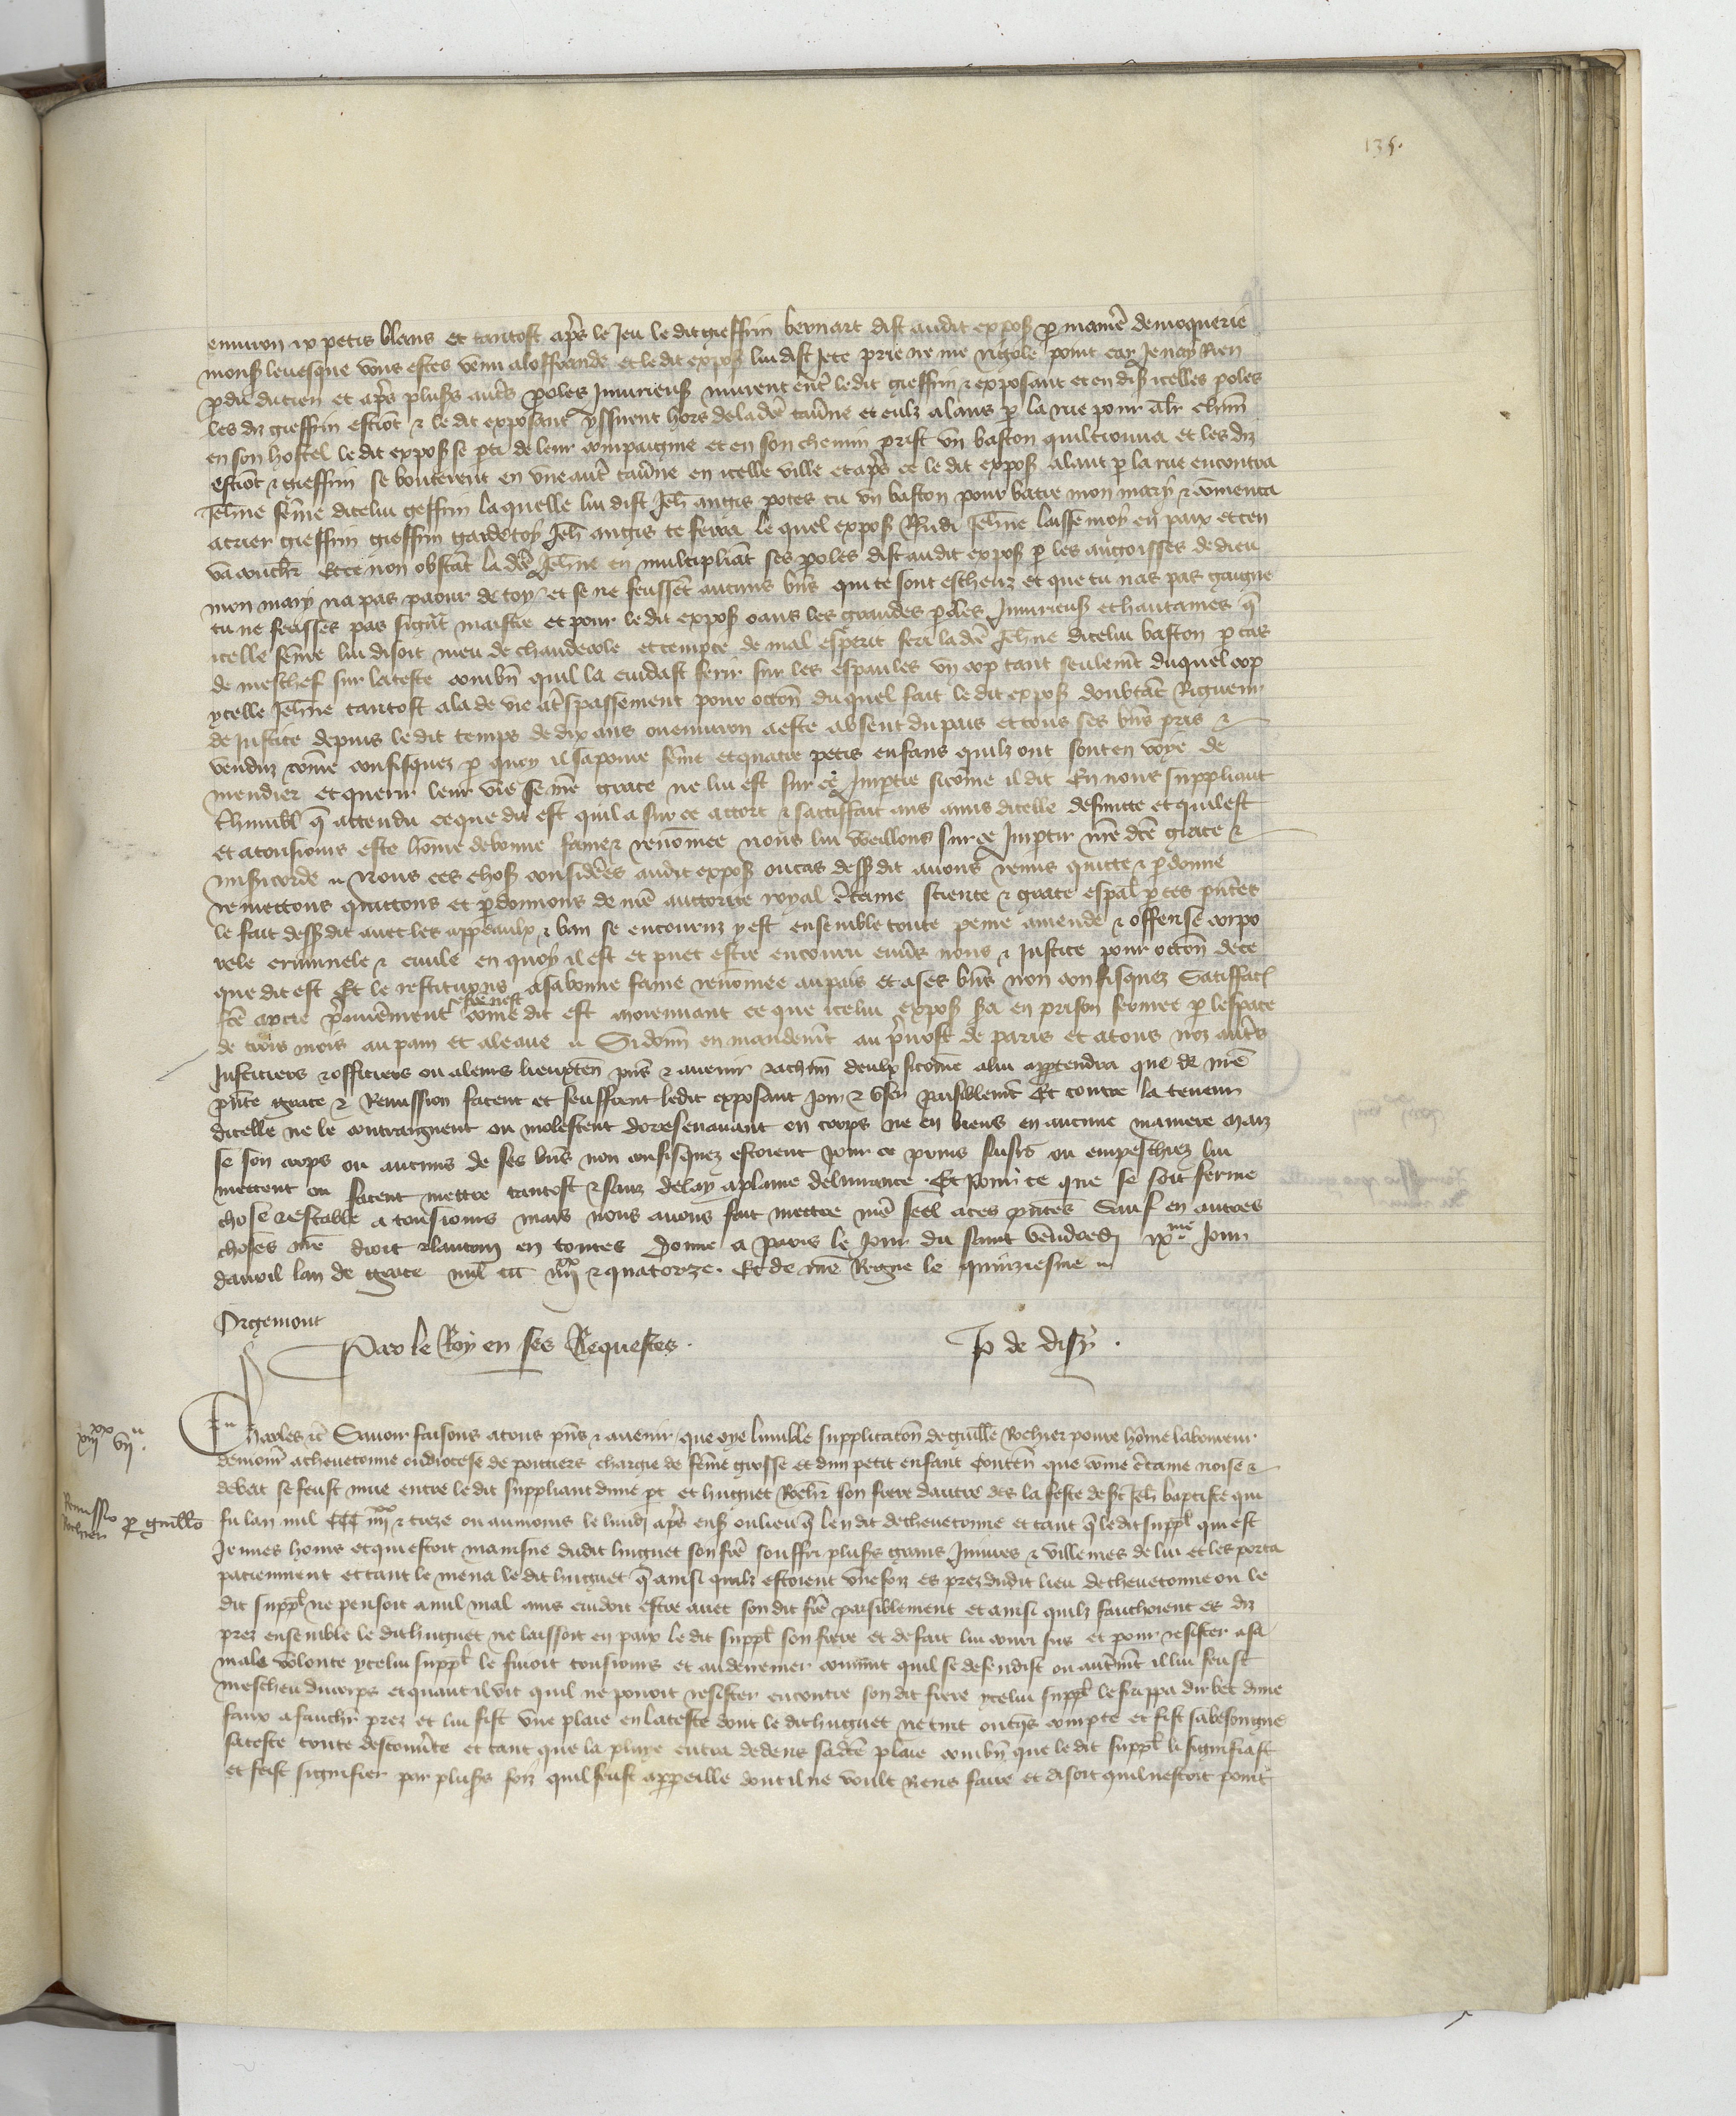 135.
environ ix petis blans et tantost apres le Jeu le dit gieffrin bernart dist audit expos par maniere de moquerie
mons levesque vous estes venu a loffrande et le dit expos lui dist Je te prie ne me rigole point car Je nay Rien
perdu du tien et apres plusrs autres paroles Injurieuses murent entre ledit gieffrin et exposant et en dis icelles paroles
les diz gieffrin estiot et le dit exposant yssirent hors de la dce taverne et eulz alans par la rue pour aler chun
en son hostel le dit expos se parti de leur compaignie et en son chemin prist un baston quil trouva et les diz
estiot et gieffrin se bouterent en une autre taverne en icelle ville et apres ce le dit expos alant par la rue encontra
Jehne feme dicelui geffrin laquelle lui dist Jeh angis portes tu un baston pour batre mon mary et comenca
a crier gieffrin gieffrin garde toy Jeh angis te ferra lequel expos Rndi Jehne laisse moy en paix et ten
va coucher Et ce non obstat la dce Jehne en multipliat ses paroles dist audit expos par les angoisses de dieu
mon mary na pas paour de toy et se ne feussent aucuns biens qui te sont escheuz et que tu nas pas gaigne
tu ne feusses pas si grant maistre et pour ledit expos oans les grandes paroles Injurieuses et hautaines que
icelle feme lui disoit meu de chaudecole et tempte de mal esperit feri la dce Jehne dicelui baston par cas
de meschef sur la teste combn quil la cuidast ferir sur les espaules un cop tant seulement duquel cop
ycelle Jehne tantost ala de vie a trespassement pour occon duquel fait le dit expos doubtat Rigueur
de justice depuis le dit temps de dix ans ou environ a este absent du pais et tous ses bns pris et
venduz come confisquez par quoy il sa povre feme et quatre petis enfans quilz ont sont en voye de
mendier et querir leur vie se nre grace ne lui est sur ce Impartie si come il dit En nous suppliant
humbl que attendu ce que dit est quil a sur ce accort et sattisfait aus amis dicelle defuncte et quil est
et a tousiours este home de bonne fame et renomee nous lui veillons sur ce Impartir nre dce grace et
misericorde Nous ces choses considerees audit expos ou cas dessusdit avons remis quitte et pardonne
remettons quittons et pardonnons de nre auctorite royal certaine science et grace espal par ces pntes
le fait dessusdit avec les appeaulx et ban se encouruz y est ensemble toute peine amende et offense corpo
rele criminele et civile en quoy il est et puet estre encouru envers nous et Justice pour occon de ce
que dit est Et le restituons a sa bonne fame renomee au pais et a ses bns non confisquez Satiffact
fce a partie premierement se fce nest come dit est moiennant ce que icelui expos sera en prison fermee par lespace
de trois mois au pain et a leaue Si donn en mandemt au prevost de paris et a tous noz autres
Justiciers et officiers ou a leurs lieuxten pns et avenir et a chun deulx si come a lui appartendra que de nre
pnte grace et Remission facent et seuffrent ledit exposant Joir et user paisiblemt Et contre la teneur
dicelle ne le contraignent ou molestent doresenavant en corps ne en biens en aucune maniere Maiz
se son corps ou aucuns de ses bns non confisquez estoient pour ce prins saisis ou empeschiez lui
mettent ou facent mettre tantost et sanz delay a plaine delivrance. Et pour ce que se soit ferme
chose et estable a tousiours mais nous avons fait mettre nre seel a ces pntes Sauf en autres
choses nre droit et lautrui en toutes Donne a Paris le Jour du saint vendredi ixme Jour
davril lan de grace mil ccc iiiixx et quatorze. Et de nre Regne le quinziesme
Orgemont
Par le Roy en ses Requestes. JP de disy.
xiixx vii
Charles etc Savoir faisons a tous pns et avenir que oye lumble supplicacon de guille Rochier povre home laboureur
demour a chevetonne ou diocese de poitiers chargie de feme grosse et dun petit enfant Conten que come certaine noise et
debat se feust mue entre le dit suppliant dune part et huguet Rochr son frere dautre des la feste de st Jeh baptiste qui
Remissio pro guillo Rochier
fu lan mil CCC iiiixx et treze ou aumoins le lundi apres ens ou lieu que len dit de chevetonne et tant que le dit suppl qui est
Jeunes homs et qui estoit mainsne dudit huguet son fre souffri plusrs grans Injures et villenies de lui et les porta
paciemment et tant le mena le dit huguet que ainsi quilz estoient une foiz es prez dudit lieu de chevetonne ou le
dit suppl ne pensoit a nul mal ains cuidoit estre avec son dit fre paisiblement et ainsi quilz fauchoient es diz
prez ensemble le dit huguet ne laissoit en paix le dit suppl son frere et de fait lui couru sus et pour resister a sa
male volonte ycelui suppl le fuioit tousiours et au derrenier convint quil se defendist ou autremt il lui feust
mescheu du corps et quant il vit quil ne povoit resister encontre son dit frere ycelui suppl le frappa du bec dune
faux a faucher prez et lui fist une plaie en la teste dont le dit huguet ne tint oncqs compte et fist sa besoingne
sa teste toute descouverte et tant que la pluye entra dedens sa dce plaie combn que le dit suppl li signifiast
et feist signifier par plusrs foiz quil feust appareille dont il ne voult Riens faire et disoit quil nestoit point